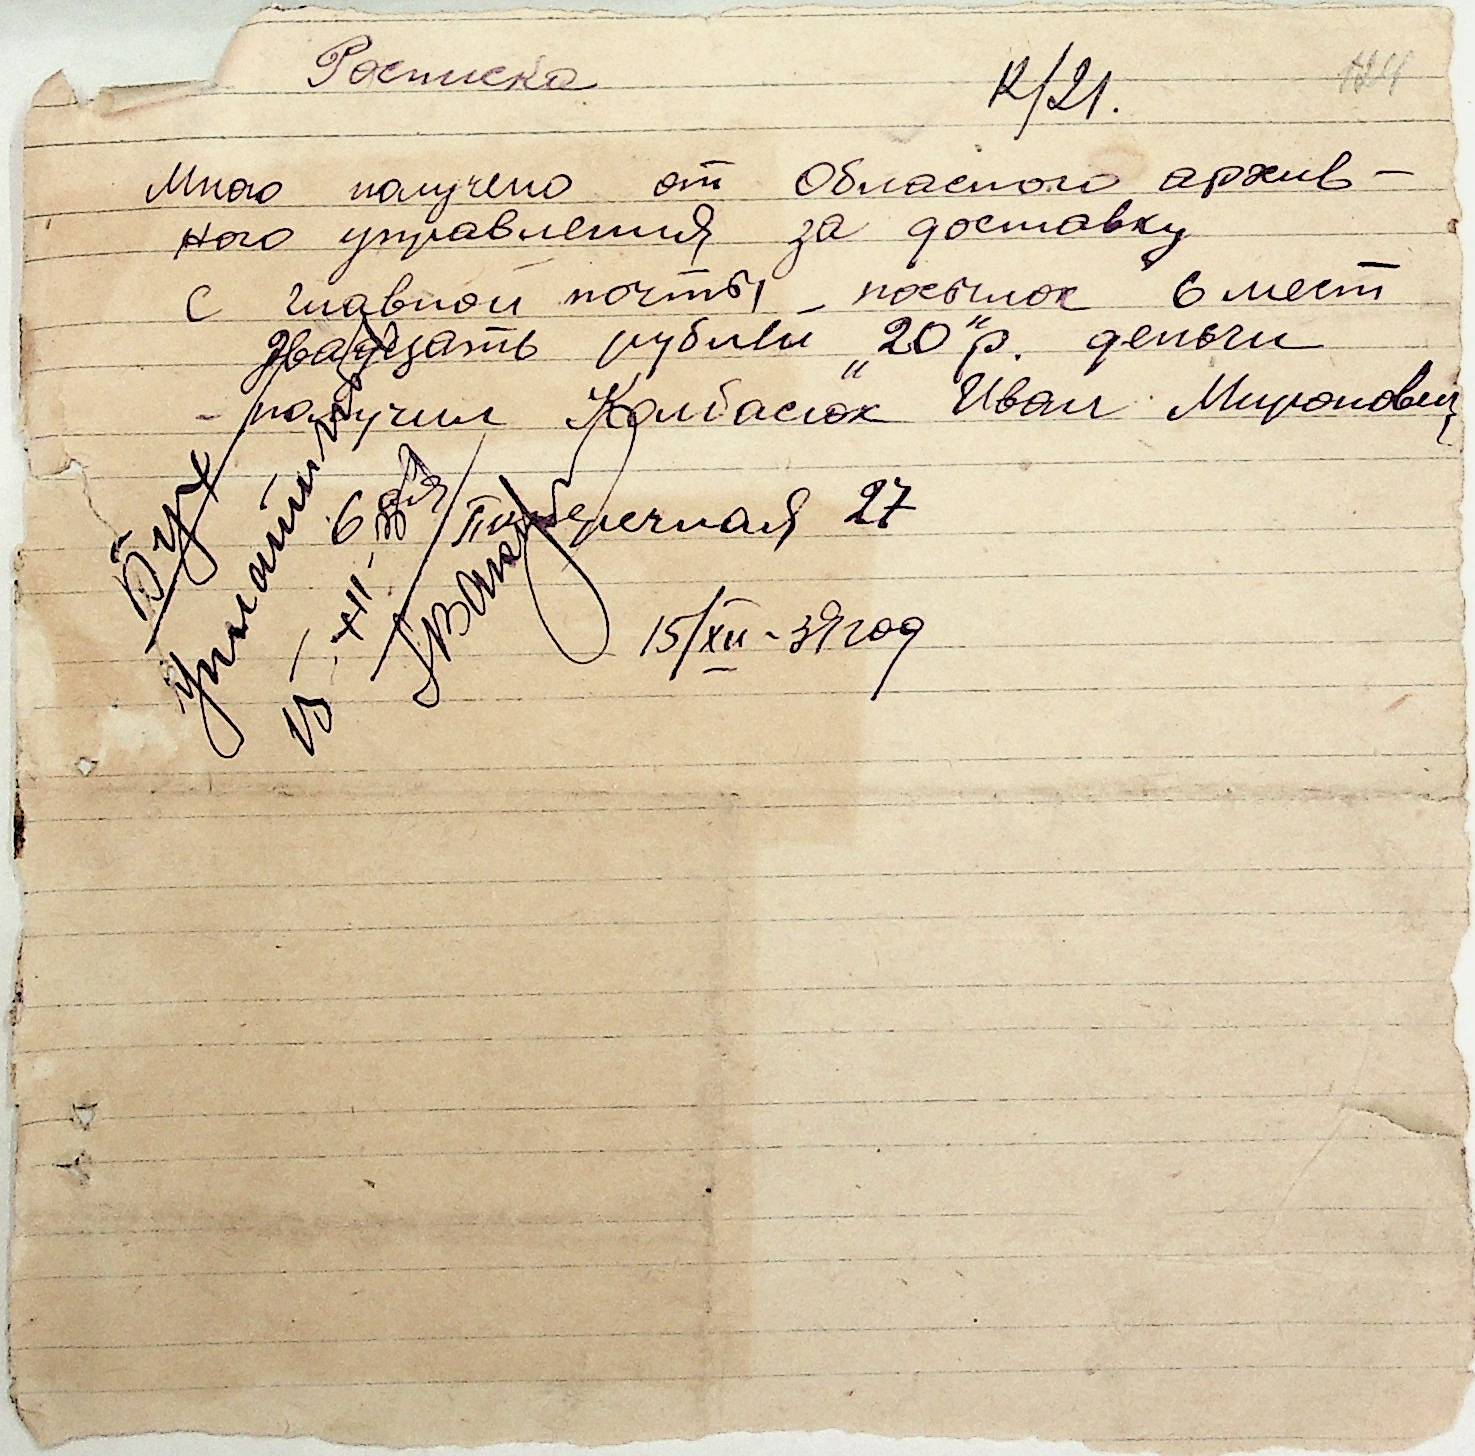 Росписка
12/21.
Мною получено от Областного архив-
ного управления за доставку
с главной почты посылок 6 мест
двадцать рублей „20" р. деньги
- получил Колбасюк Иван Миронович
Поперечная 27
15/XII - 39 год
Бух
уплатить
15-XII-39